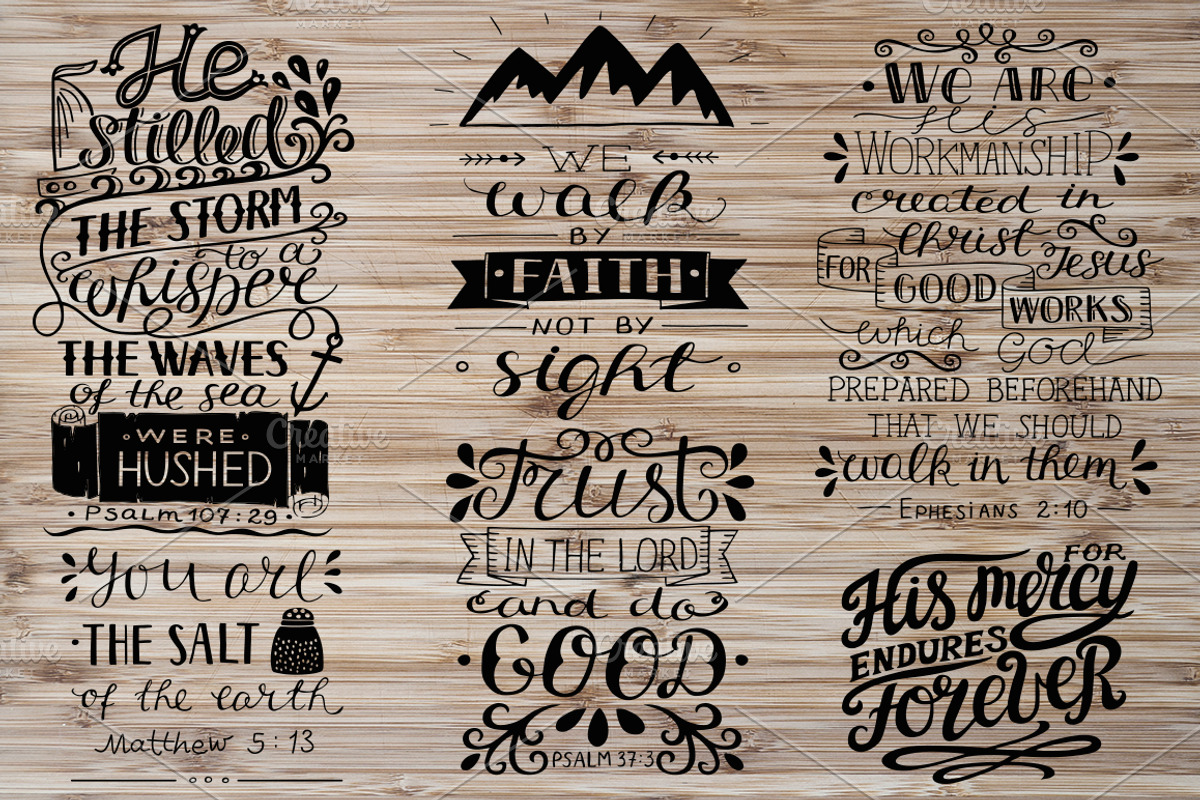 He
stilled
THE STORM
to a
whisper
THE WAVES
of the sea
WERE
HUSHED
Psalm 107:29
You are
THE SALT
of the earth
Matthew 5:13
WE
walk
BY
FAITH
NOT BY
sight
Trust
IN THE LORD
and do
GOOD
PSALM 37:3
WE ARE
His
WORKMANSHIP
created in
Christ Jesus
FOR GOOD WORKS
which God
PREPARED BEFOREHAND
THAT WE SHOULD
walk in them
EPHESIANS 2:10
FOR
His mercy
ENDURES
Forever
Creative
MARKET